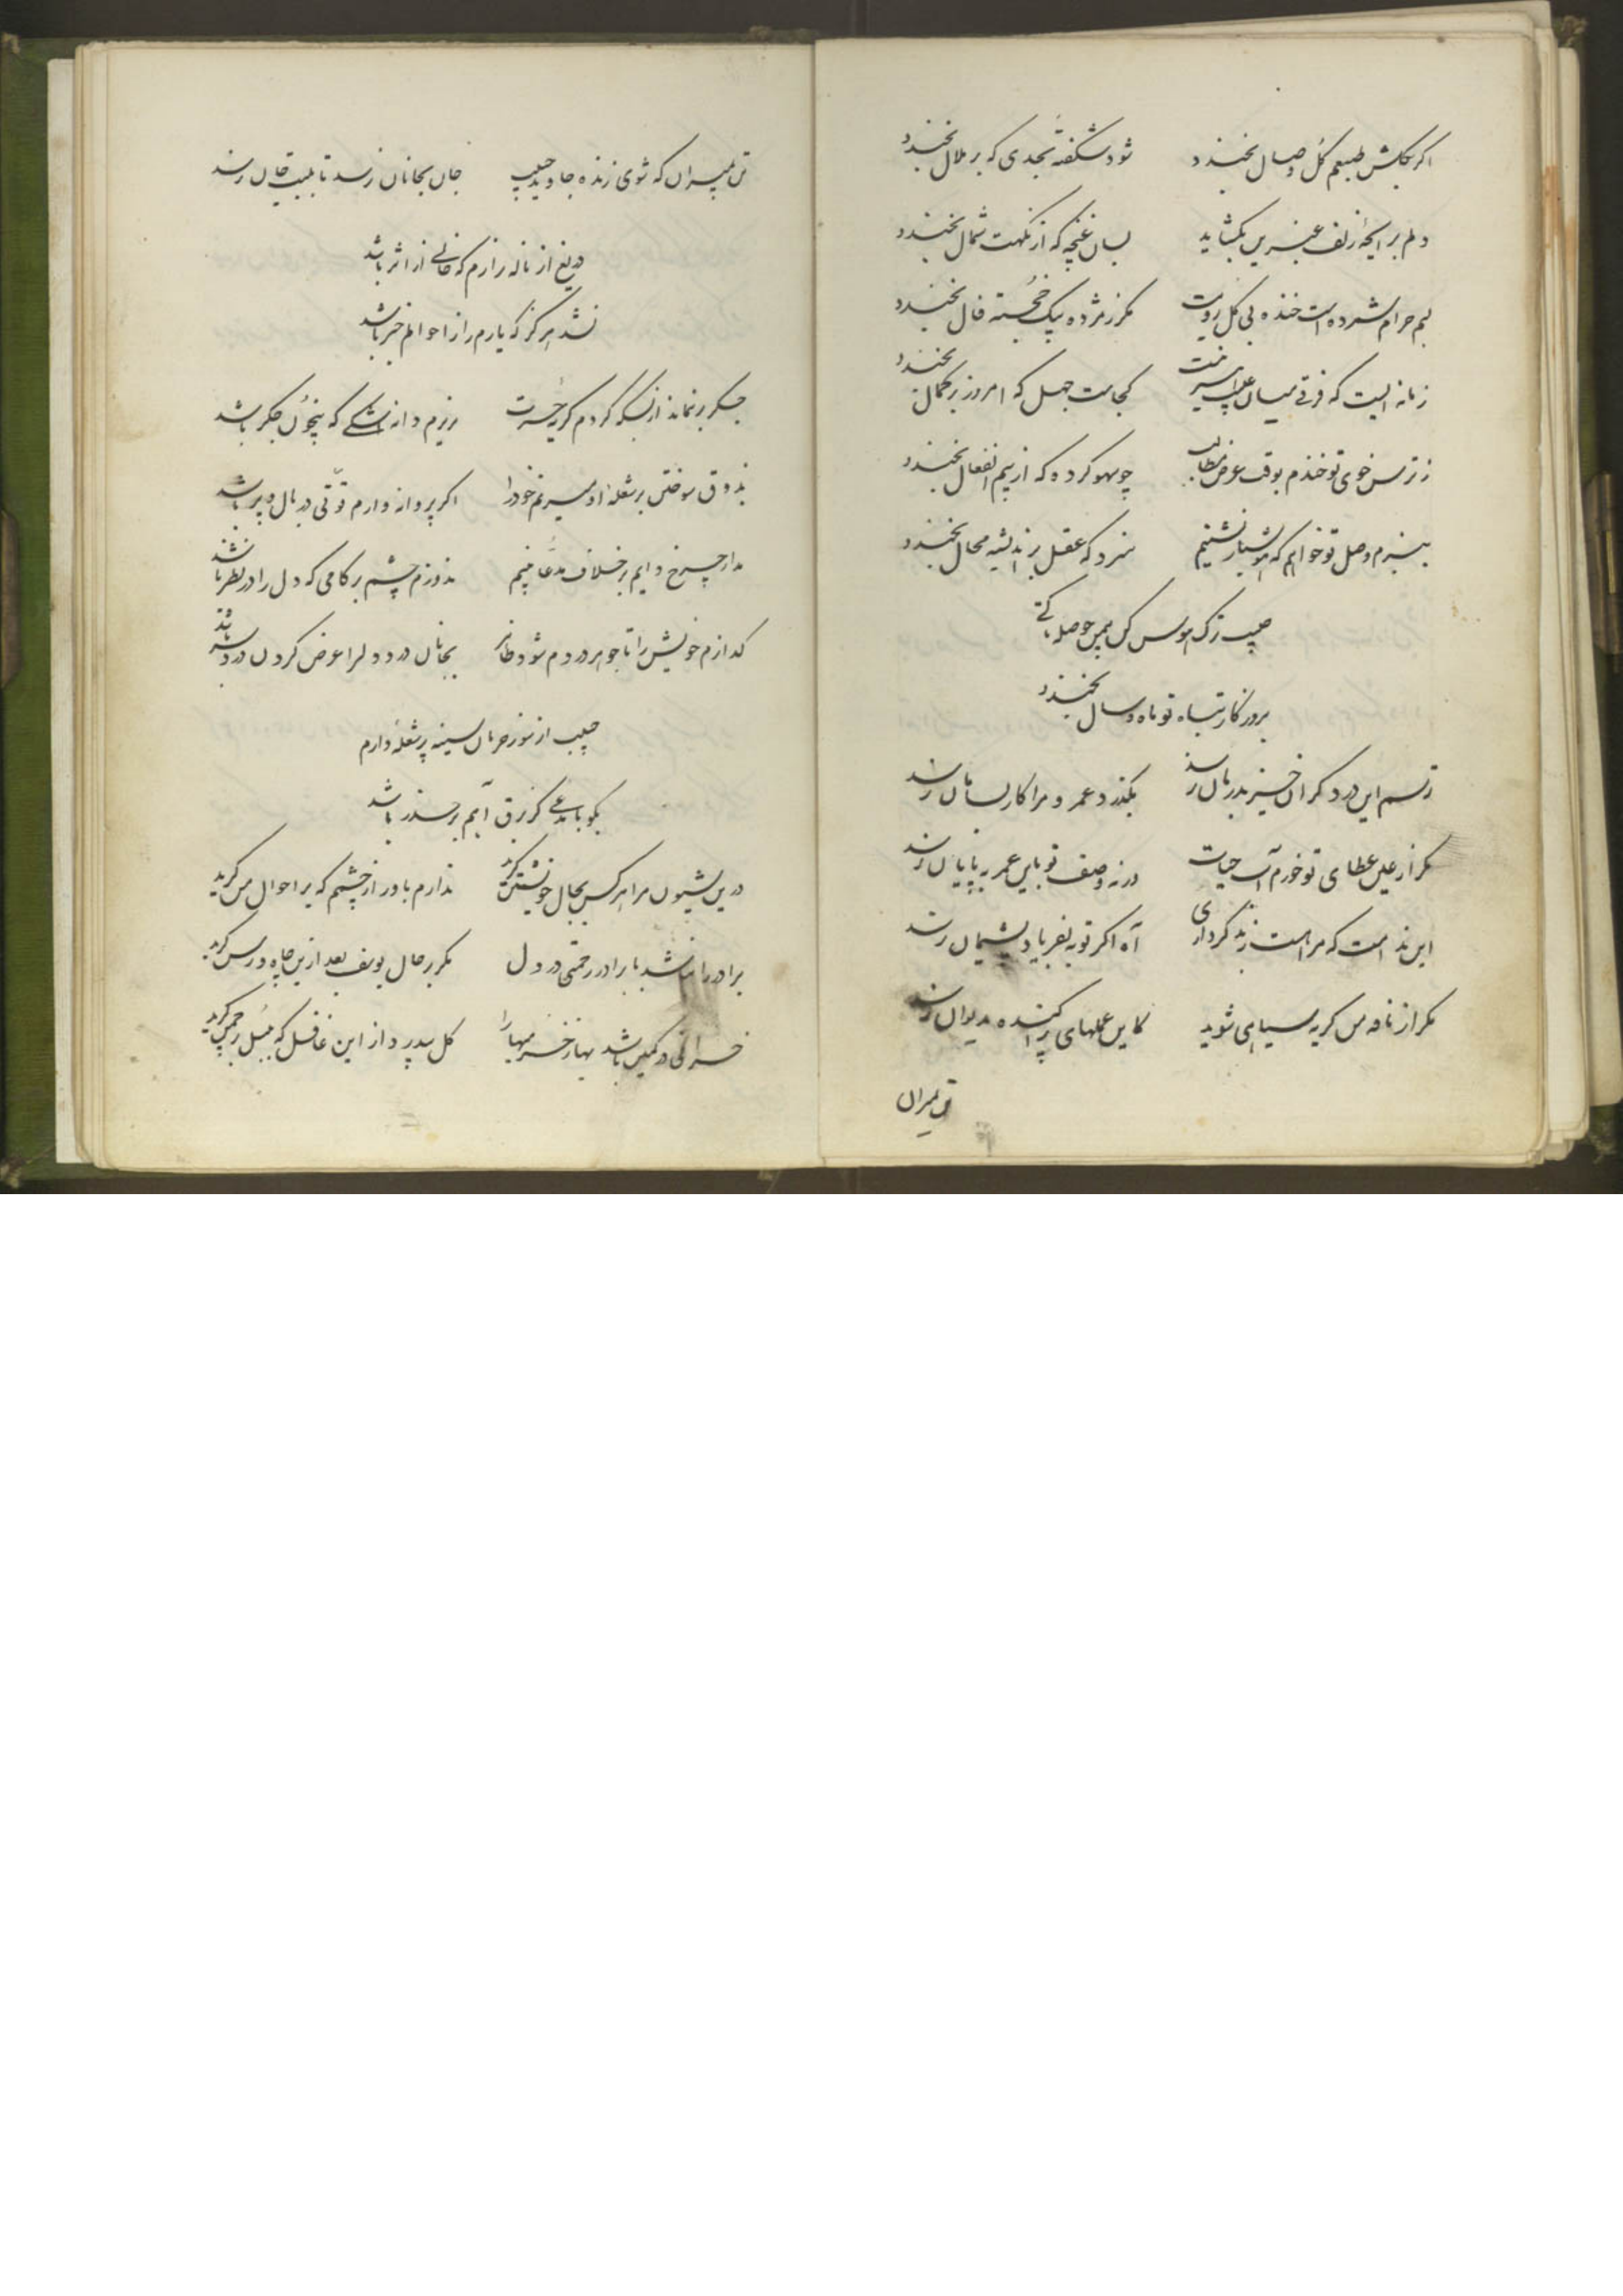 اکر بکلشن طبعم کل وصال بخندد شود شکفته بحدی که بر ملال بخندد
دلم برایحهٔ زلف عنبرین بکشاید بسان غنچه که از نکهت شمال بخندد
لبم حرام شمرده است خنده بی کل رویت مکر ز مژده پیک خجسته فال بخندد
زمانه ایست که فرقی میان نیست کجاست جهل که امروز بر کمال بخندد
ز ترس خوی تو خندم بوقت عرض مطالب چو سهو کرده که از بیم انفعال بخندد
ببزم وصل تو خواهم که هوشیار نشینم سزد که عقل بر اندیشه محال بخندد
حبیب ترک هوس کن باین حوصله تا کی
بروزکار تباه تو ماه و سال بخندد
ترسم این درد کران خیز بدرمان نرسد بکذرد عمر و مرا کار بسامان نرسد
مکر از عین عطای تو خورم آب حیات ورنه وصف تو باین عمر بپایان نرسد
این ندامت که مرا هست ز بد کرداری آه اکر توبه بفریاد پشیمان نرسد
مکر از نامه من کریه سیاهی شوید کاین عملهای پراکنده بدیوان نرسد
تن بمیران
تن بمیران که شوی زنده جاوید حبیب جان بجانان نرسد تا بلبت جان نرسد
دریغ از ناله زارم که خالی از اثر باشد
نشد هرکز که یارم را ز احوالم خبر باشد
جکر نماند از بسکه کردم کریه حسرت ریزم دانه اشکی که بیخون جکر باشد
بذوق سوختن بر شعله او میزنم خود را اکر پروانه وارم قوتی در بال و پر باشد
مدار چرخ دایم بر خلاف مدعا بینم ندوزم چشم بر کامی که دل را در نظر باشد
کدازم خویش را تا جوهر دردم شود ظاهر بجانان درد دل را عرض کردن درد سر باشد
حبیب از سوز حرمان سینه پر شعله دارم
بکو با مدعی کز برق آهم بر حذر باشد
درین شیون مرا هرکس بحال خویشتن کرید ندارم باور از چشم که بر احوال من کرید
برادر را نباشد با برادر رحمتی در دل مکر بر حال یوسف بعد ازین چاه و رسن کرید
خزانی در کمین باشد بهار را کل بیدرد از این غافل که بلبل در چمن کرید